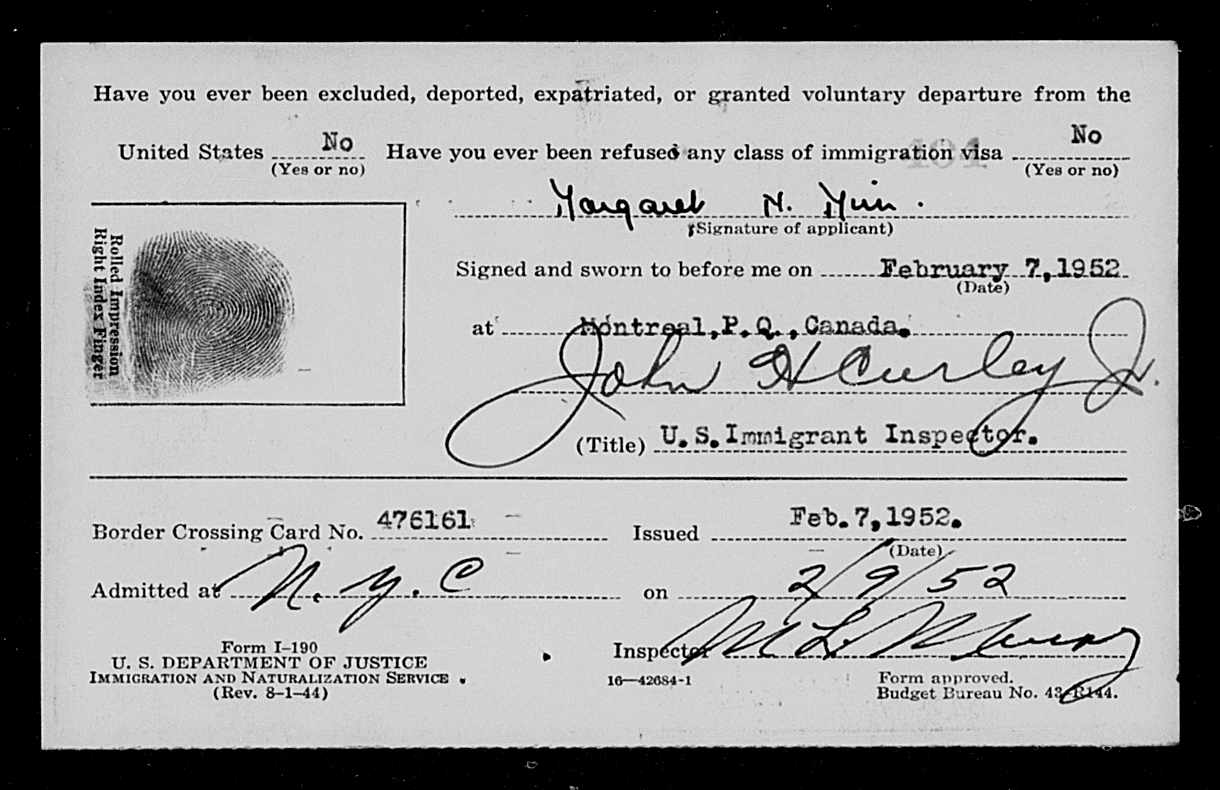 Have you ever been excluded, deported, expatriated, or granted voluntary departure from the
United States No Have you ever been refused any class of immigration visa No
(Yes or no) (Yes or no)
Margaret N. Muir.
(Signature of applicant)
Rolled Impression
Right Index Finger
Signed and sworn to before me on February 7, 1952
(Date)
at Montreal, P. Q., Canada.
John H Curley Jr.
(Title) U. S. Immigrant Inspector.
Border Crossing Card No. 476161 Issued Feb. 7, 1952.
(Date)
Admitted at N. Y. C on 2/9/52
Form I-190
U. S. DEPARTMENT OF JUSTICE
IMMIGRATION AND NATURALIZATION SERVICE
(Rev. 8-1-44)
Inspector M L
16—42684-1
Form approved.
Budget Bureau No. 43-R144.